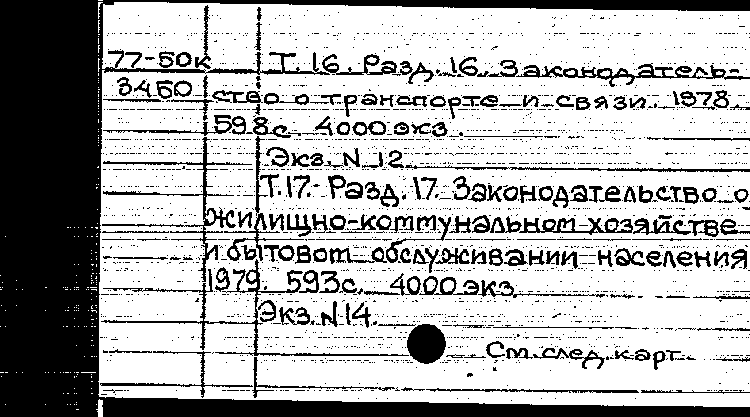 77-50к Т. 16. Разд. 16. Законодатель-
3450 ство о транспорте и связи. 1978.
598с. 4000 экз.
Экз. N 12
Т. 17. Разд. 17. Законодательство о
жилищно-коммунальном хозяйстве
и бытовом обслуживании населения
1979. 593с. 4000 экз.
Экз. N 14.
См. след. карт.